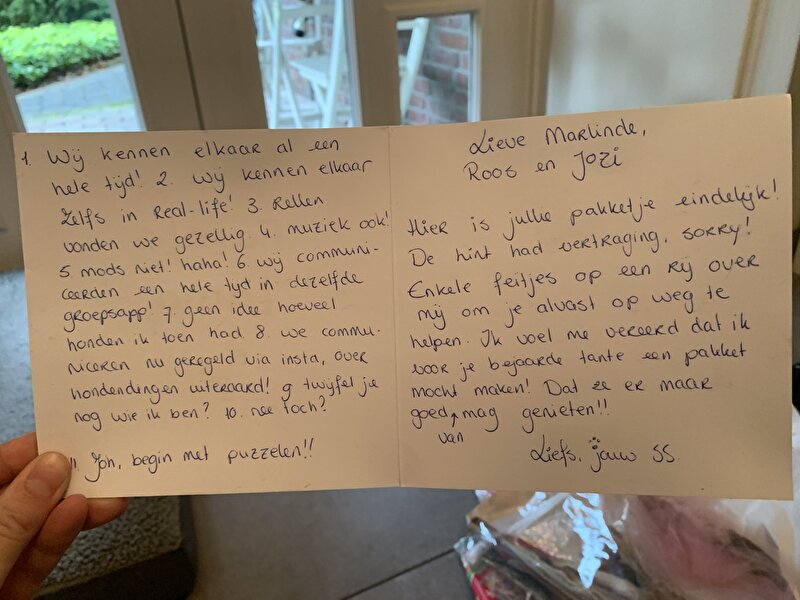 1. Wij kennen elkaar al een
hele tijd! 2. Wij kennen elkaar
zelfs in Real-life! 3. Rellen
vonden we gezellig. 4. muziek ook!
5. mods niet! haha! 6. wij communi-
ceerden een hele tyd in dezelfde
groepsapp! 7. geen idee hoeveel
honden ik toen had. 8. we commu-
niceren nu geregeld via insta, over
hondendingen uiteraard! 9 twijfel je
nog wie ik ben? 10. nee toch?
11 Joh, begin met puzzelen!!
Lieve Marlinde,
Roos en Jozi
Hier is jullie pakketje eindelijk!
De hint had vertraging, sorry!
Enkele feitjes op een rij over
mij om je alvast op weg te
helpen. Ik voel me vereerd dat ik
voor je bejaarde tante een pakket
mocht maken! Dat ze er maar
goed ^ mag genieten!!
van
Liefs, jouw SS.